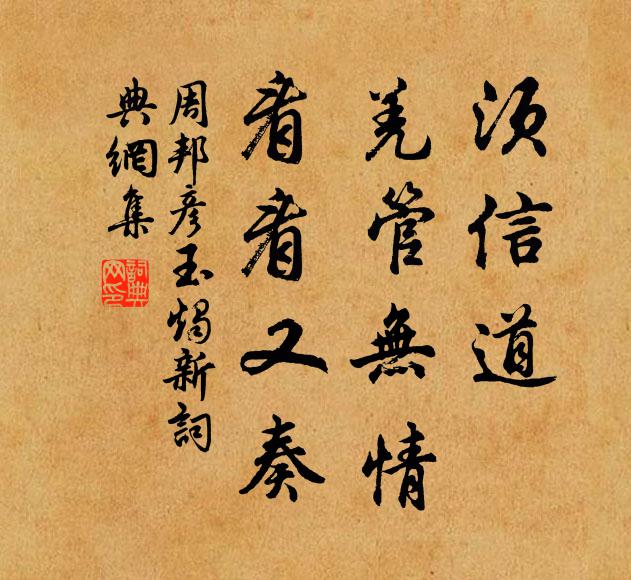 須信道
羌管無情
看看又奏
周邦彥玉燭新詞
典網集
詞典網印